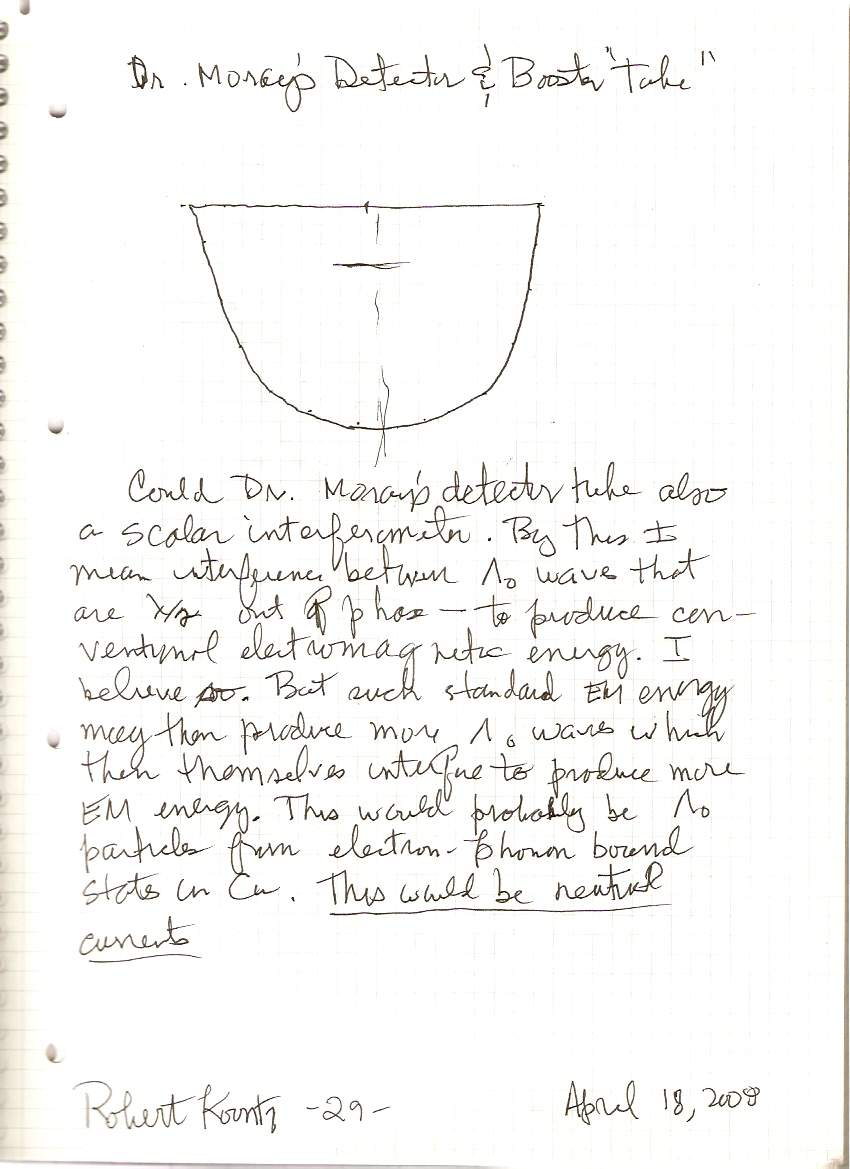 Dr. Moray's Detector & Booster "Tube"
Could Dr. Moray's detector tube also
a scalar interferometer. By this I
mean interference between Λ₀ wave that
are λ/2 out of phase — to produce con-
ventional electromagnetic energy. I
believe so. But such standard EM energy
may then produce more Λ₀ waves which
then themselves interfere to produce more
EM energy. This would probably be Λ₀
particles from electron-phonon bound
state in Cu. This would be neutral
currents
Robert Koontz -29- April 18, 2008